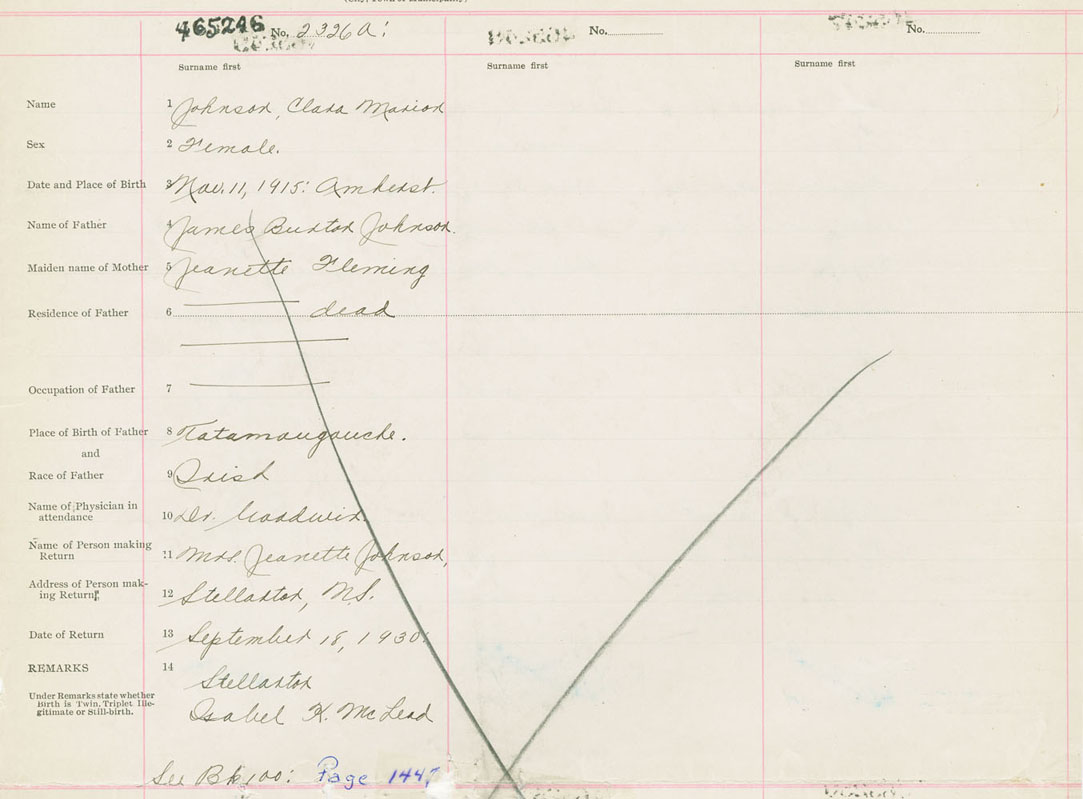 465246 No. 2326A: No. No.
Surname first Surname first Surname first
Name 1 Johnson, Clara Marion
Sex 2 Female.
Date and Place of Birth 3 Nov. 11, 1915: Amherst.
Name of Father 4 James Burton Johnson.
Maiden name of Mother 5 Jeanette Fleming
Residence of Father 6 dead
Occupation of Father 7
Place of Birth of Father 8 Tatamaugouche.
and
Race of Father 9 Irish
Name of Physician in
attendance 10 Dr. Goodwin.
Name of Person making
Return 11 Mrs. Jeanette Johnson,
Address of Person mak-
ing Return 12 Stellarton, N.S.
Date of Return 13 September 18, 1930.
REMARKS 14 Stellarton
Under Remarks state whether
Birth is Twin, Triplet Ille-
gitimate or Still-birth.
Isabel K. McLeod
See Bk 100: Page 1447